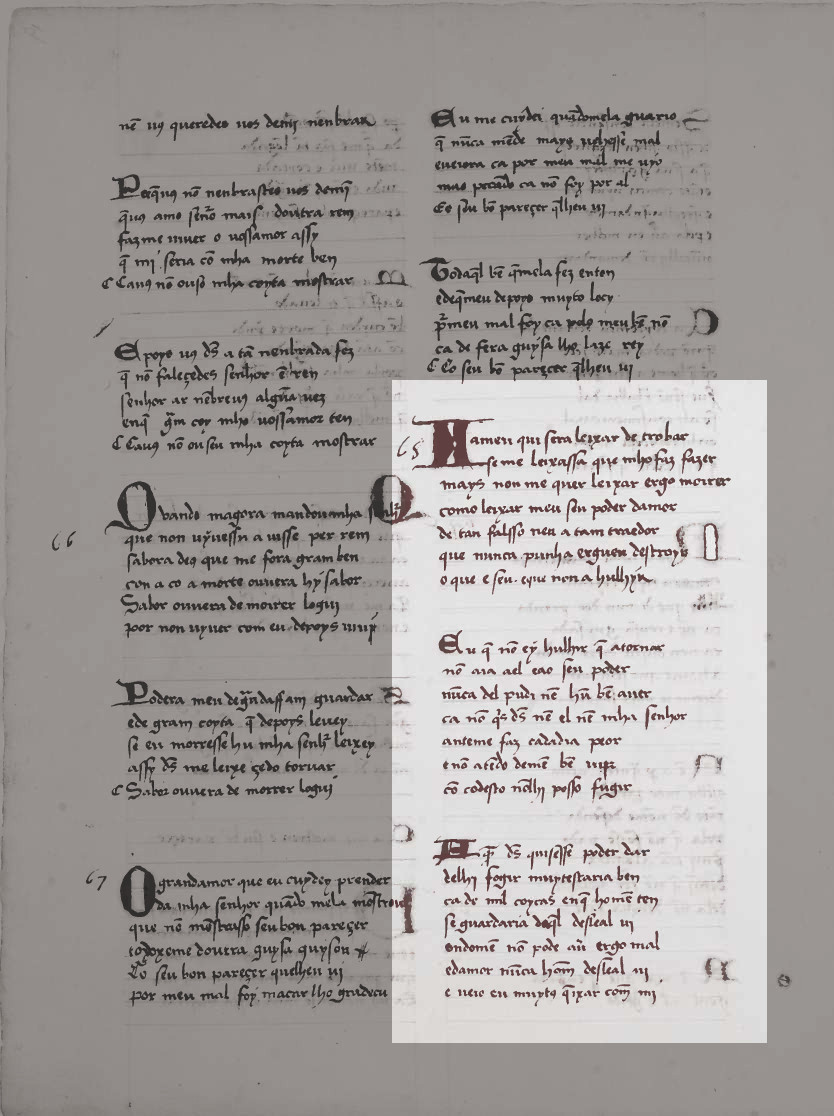 nẽ uꝯ queredes uos demj̃ nenbrar
Perq̃uꝯ nõ nenbrastes uos demj̃
q̃uꝯ amo senõ mais doutra rem
fazme uiuer o uossamor assy
q̃ mi seria cõ mha morte ben
Cauꝯ nõ ouso mha coyta mostrar
Epoys uꝯ d̃s a tã nenbrada fez
q̃ nõ faleçedes senhor ẽ ren
senhor ar nẽbreuꝯ algũa uez
enq̃ g̃m coy mho uossamor ten
Cauꝯ nõ ouseu mha coyta mostrar
66
Quando magora mandou mha senhr̃
que non uyuessẽ a uisse per rem
sabora deꝯ que me fora gram ben
con a co a morte ouuera hy sabor
Sabor ouuera de moirer loguj
por non uyuer com eu depoys uiuj
Podera meu deg̃ndaffam guardar
ede gram coyta q̃ depoys leuey
se eu morresse hu mha senhr̃ leixey
assy d̃s me leixe çedo tornar
Sabor ouuera de morrer loguj
67
O grandamor que eu cuydey prender
da mha senhor quãdo mela mostrou
que nõ mõstrasso seu bon pareçer
douera guysa guyson
Eo seu bon pareçer quelheu uj
por meu mal foy macar lho gradeçu
Eu me cuydei quãdomela guario
q̃ nũca mẽde mays uehesse mal
eueiora ca por meu mal me uyo
mao pecado ca nõ foy por al
Eo seu bõ pareçer q̃lheu uj
Todaq̃l bẽ q̃mela fez enton
edeq̃meu depoys muyto loey
p̃meu mal foy ca polo meu bẽ nõ
ca de fera guysa lhe laze rey
Eo seu bẽ pareçer q̃lheu uj
65
Hameu qui sera leixar de trobar
se me leixassa que mho faz fazer
mays non me quer leixar ergo moirer
como leixar meu seu poder damor
de tan falsso neu a tam traedor
que nunca punha erguen destroyr
o que e seu. eque non a hulhyr
Eu q̃ nõ ey hulhir q̃ atornar
nõ aia ael eao seu poder
nũca del pudi nẽ hũ bẽ auer
ca nõ q̃s d̃s nẽ el nẽ mha senhor
anteme faz cadadia peor
enõ atẽdo demẽ bẽ uijr
cõ codesto nõlhj posso fugir
E q̃ d̃s quisesse poder dar
delhj fogir muytestaria ben
ca de mil coytas enq̃ homẽ ten
se guardaria daq̃l desleal uj
endomẽ nõ pode aũ ergo mal
edamor nũca hom̃ desleal uj
e ueio eu muytꝯ q̃ixar com̃ mi